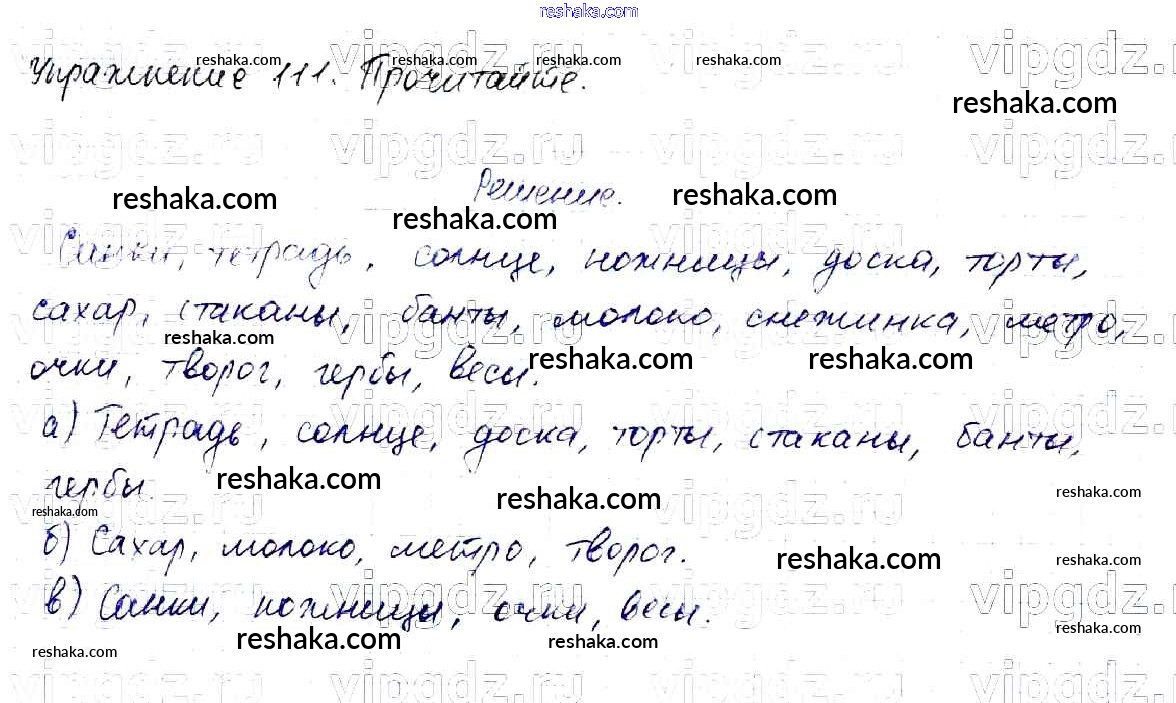 reshaka.com
Упражнение 111. Прочитайте.
reshaka.com reshaka.com reshaka.com
reshaka.com
vipgdz.ru vipgdz.ru vipgdz.ru vipgdz.
Решение.
reshaka.com reshaka.com reshaka.com
Санки, тетрадь, солнце, ножницы, доска, торты,
сахар, стаканы, банты, молоко, снежинка, метро,
reshaka.com reshaka.com reshaka.com
очки, творог, гербы, весы.
а) Тетрадь, солнце, доска, торты, стаканы, банты,
гербы.
reshaka.com reshaka.com reshaka.com reshaka.com
б) Сахар, молоко, метро, творог.
reshaka.com reshaka.com
в) Санки, ножницы, очки, весы.
reshaka.com reshaka.com reshaka.com reshaka.com
vipgdz.ru vipgdz.ru vipgdz.ru vipgdz.